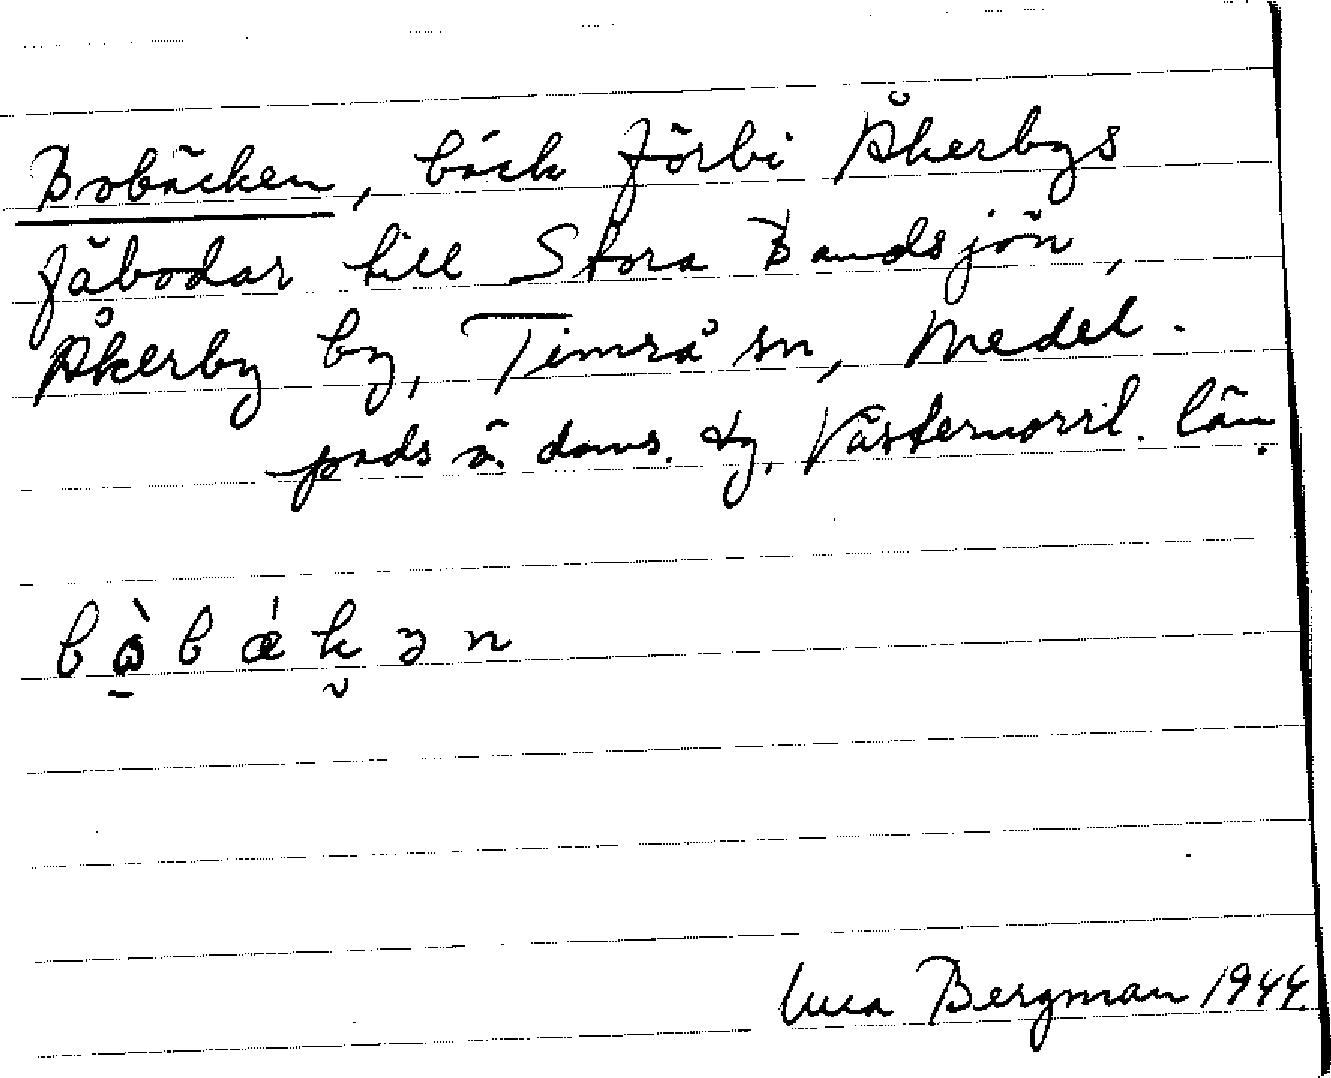 Bobäcken, bäck förbi Åkerbys
fäbodar till Stora Bandsjön,
Åkerby by, Timrå sn, Medel.
pads ö. doms. tg, Västernorrl. län.
bɷ̀bǽkən
Bergman 1944